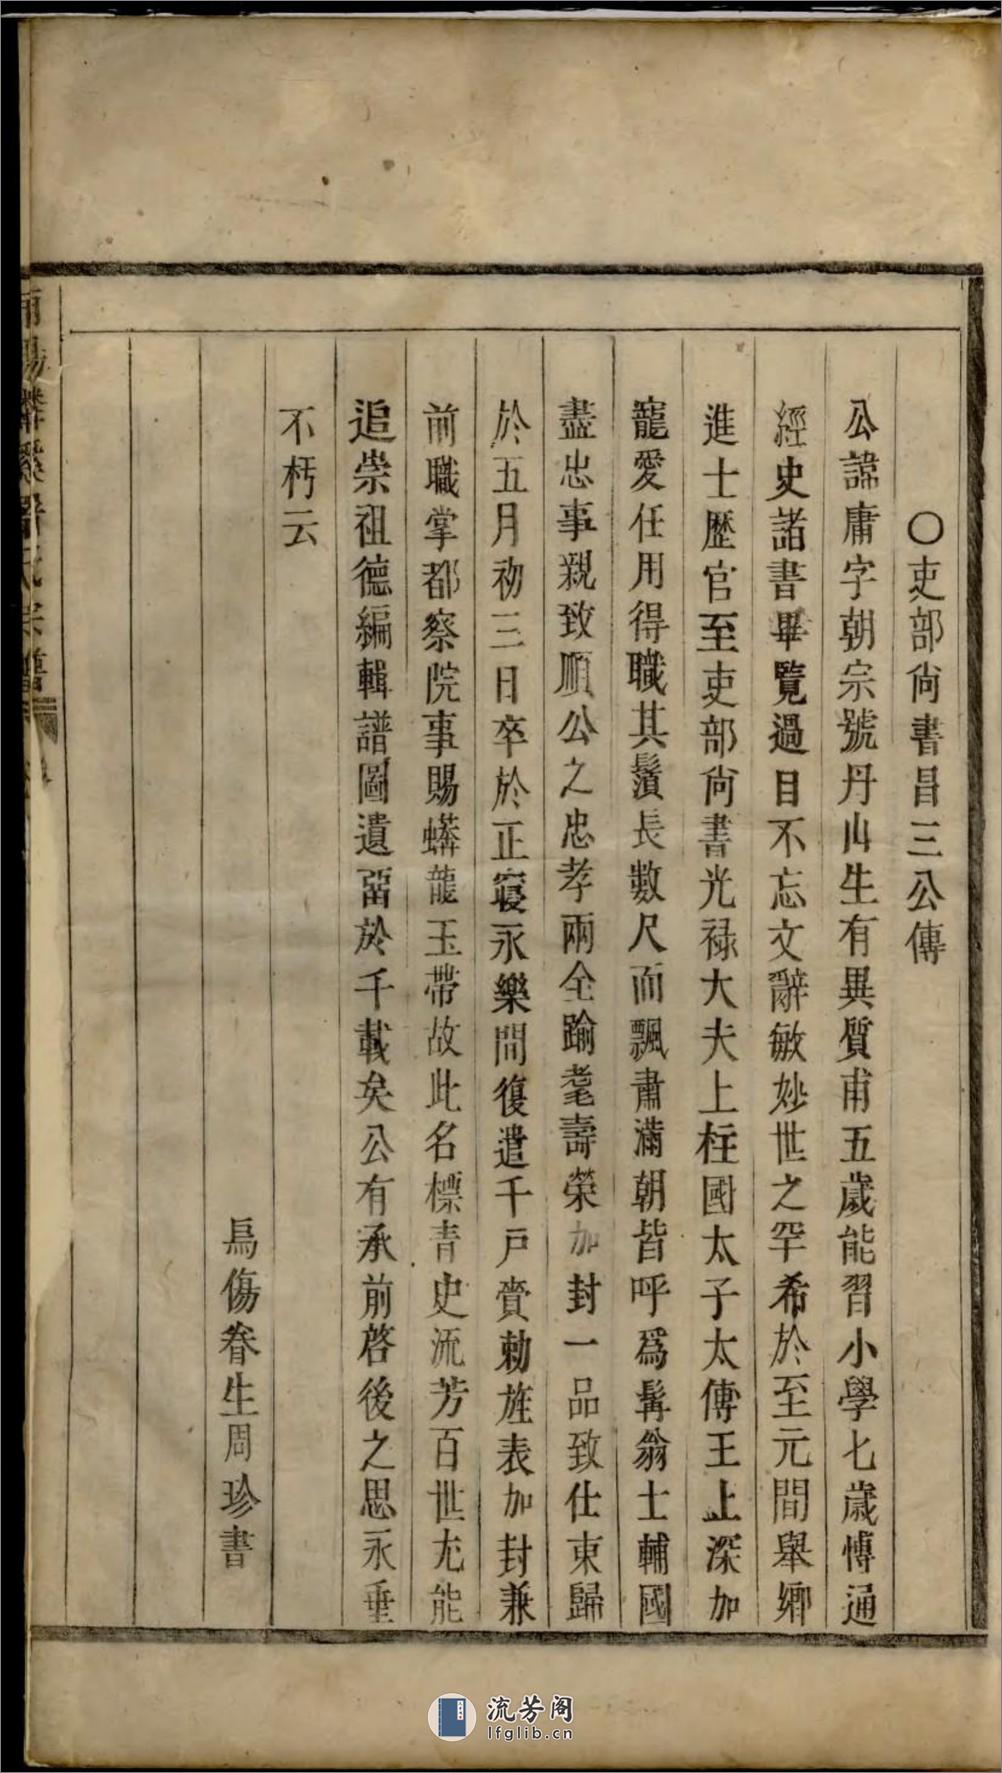 ○吏部尙書昌三公傳
公諱庸字朝宗號丹山生有異質甫五歲能習小學七歲慱通
經史諸書畢覽過目不忘文辭敏妙世之罕希於至元間舉鄉
進士歷官至吏部尙書光祿大夫上柱國太子太傅王上深加
寵愛任用得職其鬚長數尺而飄肅滿朝皆呼爲髯翁士輔國
盡忠事親致順公之忠孝兩全踰耄壽榮加封一品致仕東歸
於五月初三日卒於正寢永樂間復遣千戶賫勅旌表加封兼
前職掌都察院事賜蟒龍玉帶故此名標青史流芳百世尤能
追崇祖德編輯譜圖遺畱於千載矣公有承前啓後之思永垂
不朽云
烏傷眷生周珍書
流芳阁
lfglib.cn